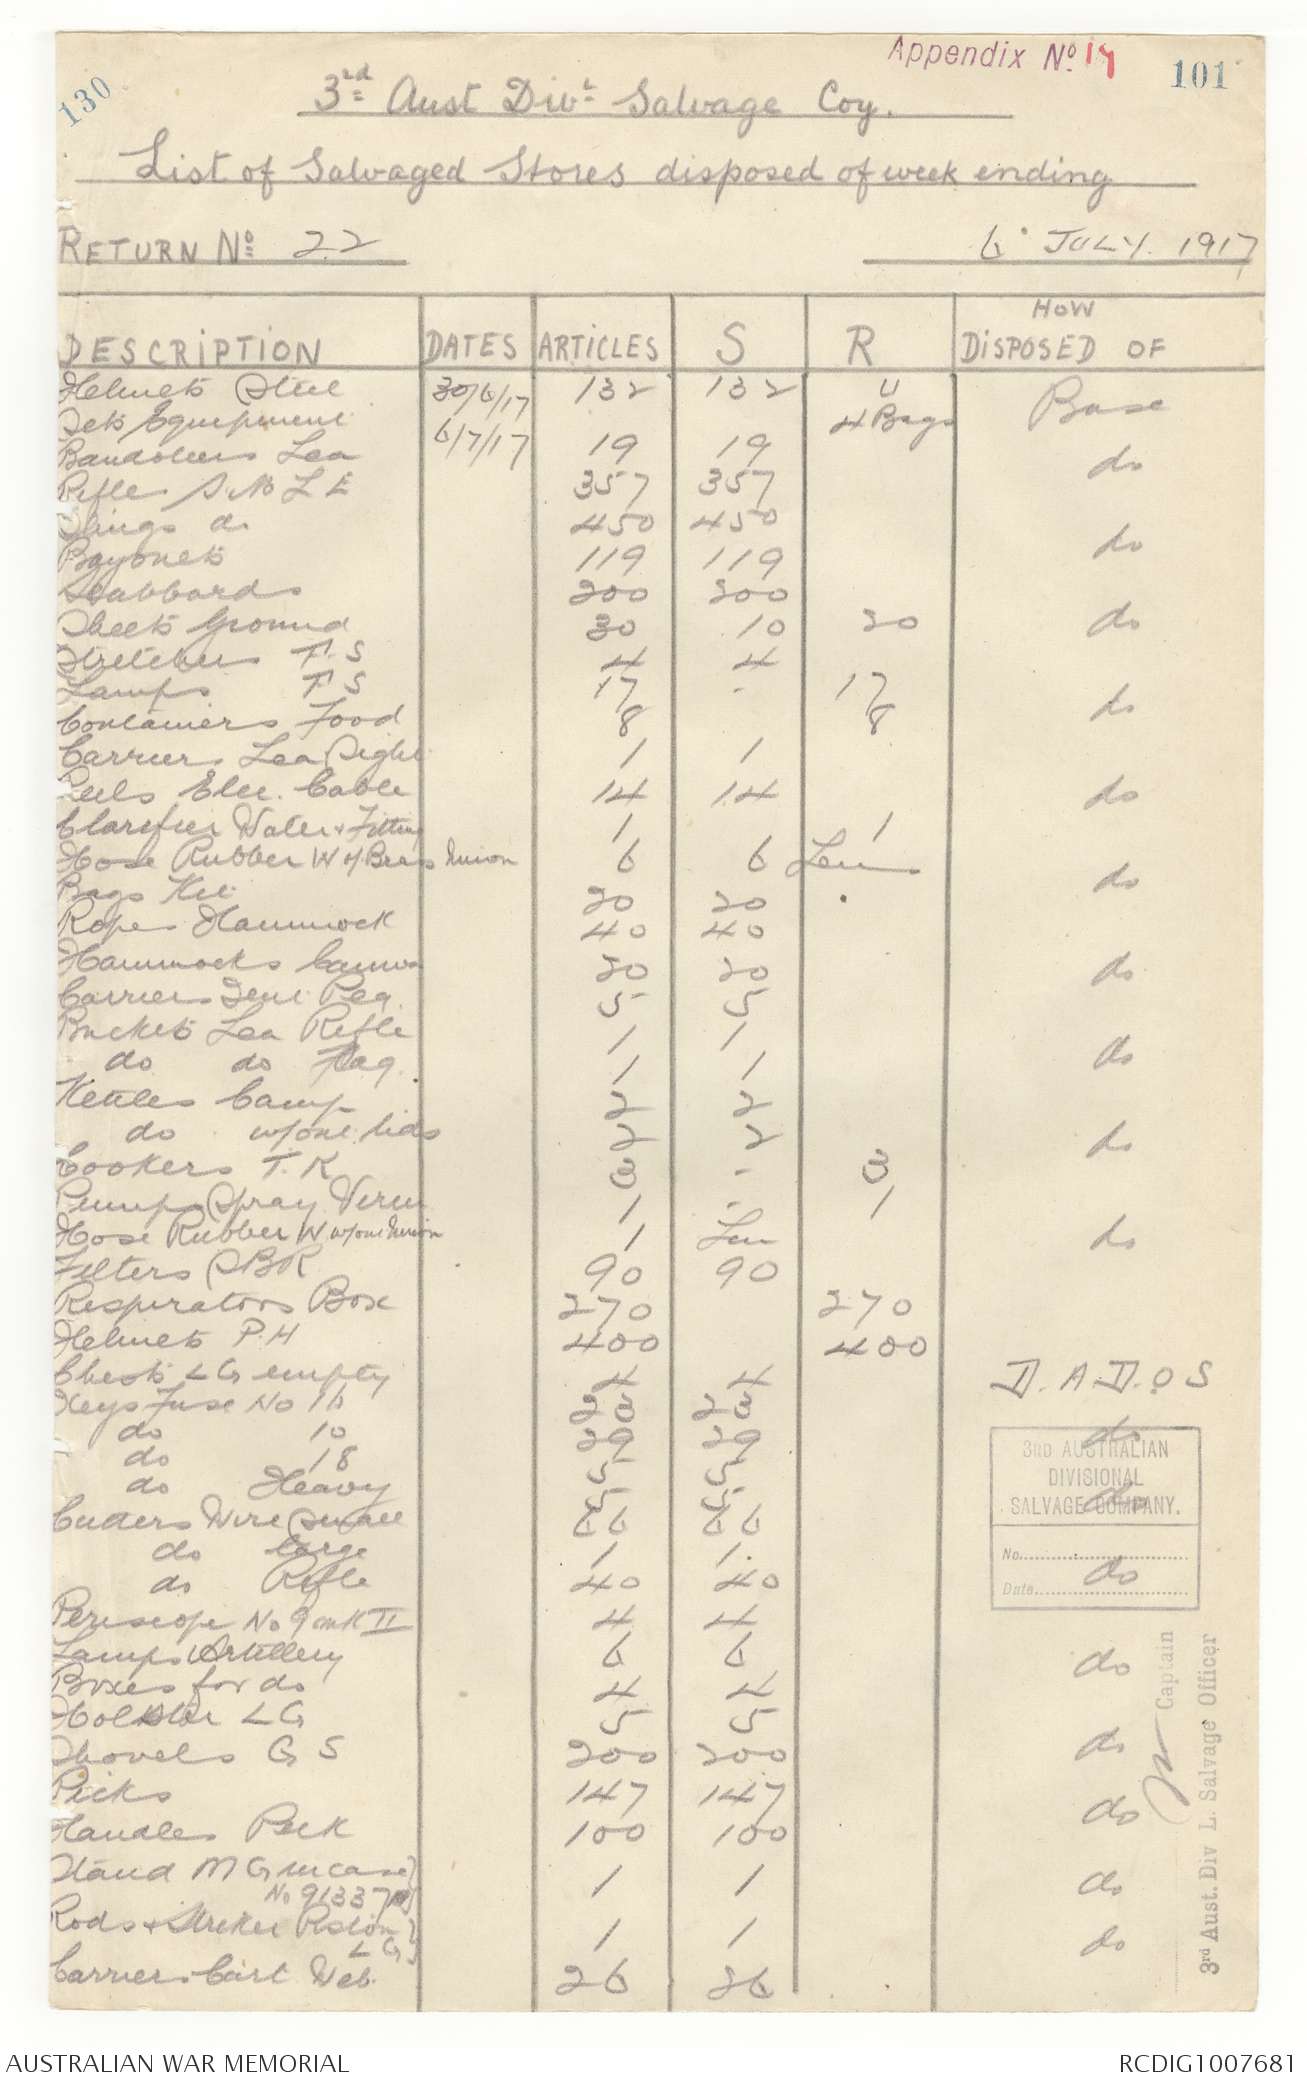 Appendix No. 19
101
130
3rd Aust Divl Salvage Coy.
List of Salvaged Stores disposed of week ending
RETURN No. 22 6. JULY. 1917
DESCRIPTION DATES ARTICLES S R HOW DISPOSED OF
Helmets Steel 30/6/17 132 132 Base
Sets Equipment 6/7/17 4 Bags
Bandoliers Lea 19 19 do
Rifles S.M L E 357 357
Slings do 450 450 do
Bayonets 119 119
Scabbards 200 200
Sheets Ground 30 10 20 do
Stretchers F. S 4 4
Lamps F S 17 - 17 do
Containers Food 8 8
Carriers Lea Sight 1 1
Reels Elec. Cable 14 14 do
Clarifier Water & Fitting 1 1
Hose Rubber W w/ Brass Union 6 6 Len
Bags Kit 20 20 do
Ropes Hammock 40 40
Hammocks Canvas 20 20 do
Carriers Tent Peg 5 5
Buckets Lea Rifle 1 1
do do Flag 1 1 do
Kettles Camp 2 2
do w/out lids 2 2 do
Cookers T. K 3 - 3
Pumps Spray Verm 1 - 1
Hose Rubber W w/out Union 1 Len do
Filters SBR 90 90
Respirators Box 270 270
Helmets P.H 400 400
Chests L G empty 4 4 D. A. D. O S
Keys Fuse No 16 23 23
do 10 29 29 do
do 18 5 5
do Heavy 5 5 do
Cutters Wire Small 66 66
do large 1 1
do Rifle 40 40 do
Periscope No 9 mk II 4 4
Lamps Artillery 6 6 do
Boxes for do 4 4
Holdster L G 5 5
Shovels G S 200 200 do
Picks 147 147
Handles Pick 100 100 do
Stand M G in case
No 91337 1 1 do
Rods & Striker Piston
L G 1 1 do
Carriers Cart Web. 26 26
3RD AUSTRALIAN
DIVISIONAL
SALVAGE COMPANY.
No.
Date.
Captain
3rd Aust. Div L. Salvage Officer
AUSTRALIAN WAR MEMORIAL
RCDIG1007681